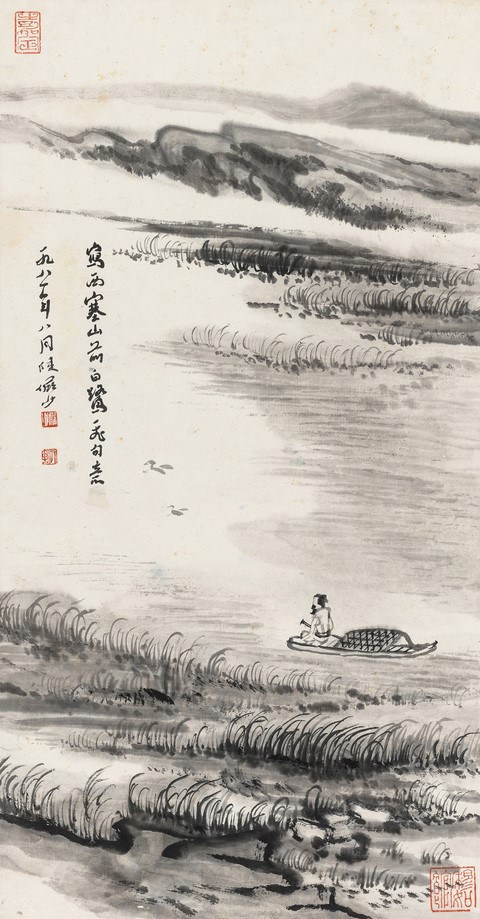 寫西塞山前白鷺飛句意
一九八年八月陸儼少